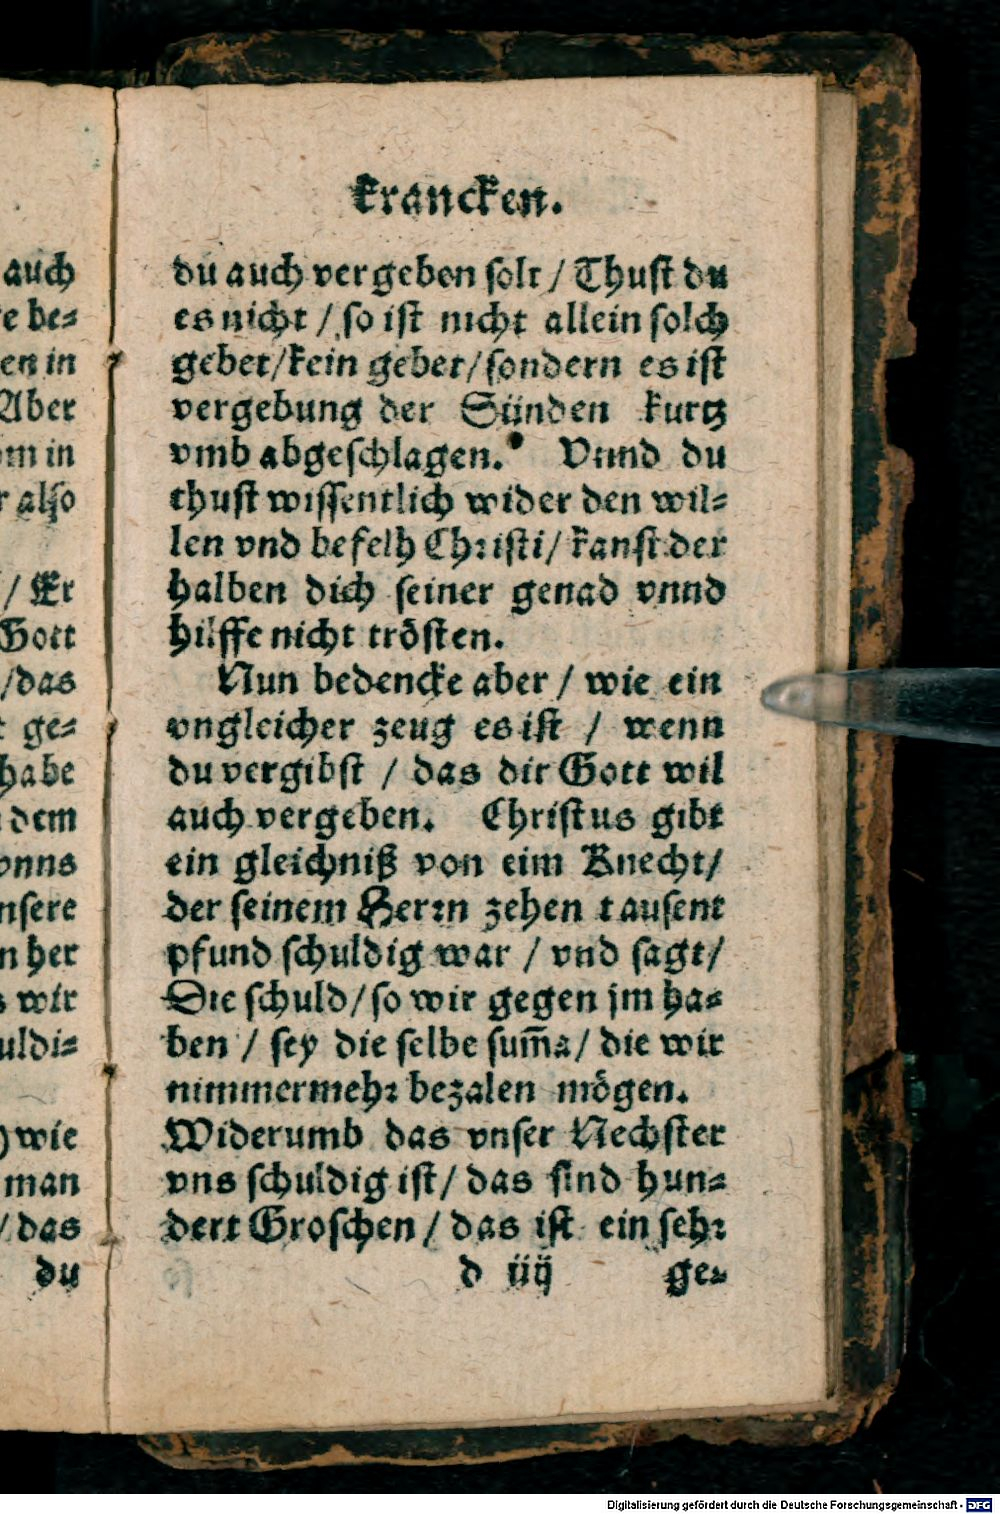 krancken.
du auch vergeben solt / Thust du
es nicht / so ist nicht allein solch
gebet/kein gebet/sondern es ist
vergebung der Sünden kurtz
vmb abgeschlagen. Vnnd du
thust wissentlich wider den wil-
len vnd befelh Christi/ kanst der
halben dich seiner genad vnnd
hilffe nicht trösten.
Nun bedencke aber / wie ein
vngleicher zeug es ist / wenn
du vergibst / das dir Gott wil
auch vergeben. Christus gibt
ein gleichniß von eim Knecht/
der seinem Herrn zehen tausent
pfund schuldig war / vnd sagt/
Die schuld/so wir gegen jm ha-
ben / sey die selbe sum̃a/ die wir
nimmermehr bezalen mögen.
Widerumb das vnser Nechster
vns schuldig ist/ das sind hun-
dert Groschen / das ist ein sehr
d iiij ge-
auch
be-
en in
Aber
m in
also
/ Er
Gott
/das
ge-
habe
dem
vnns
nsere
n her
wir
uldi-
wie
man
/ das
du
Digitalisierung gefördert durch die Deutsche Forschungsgemeinschaft - DFG